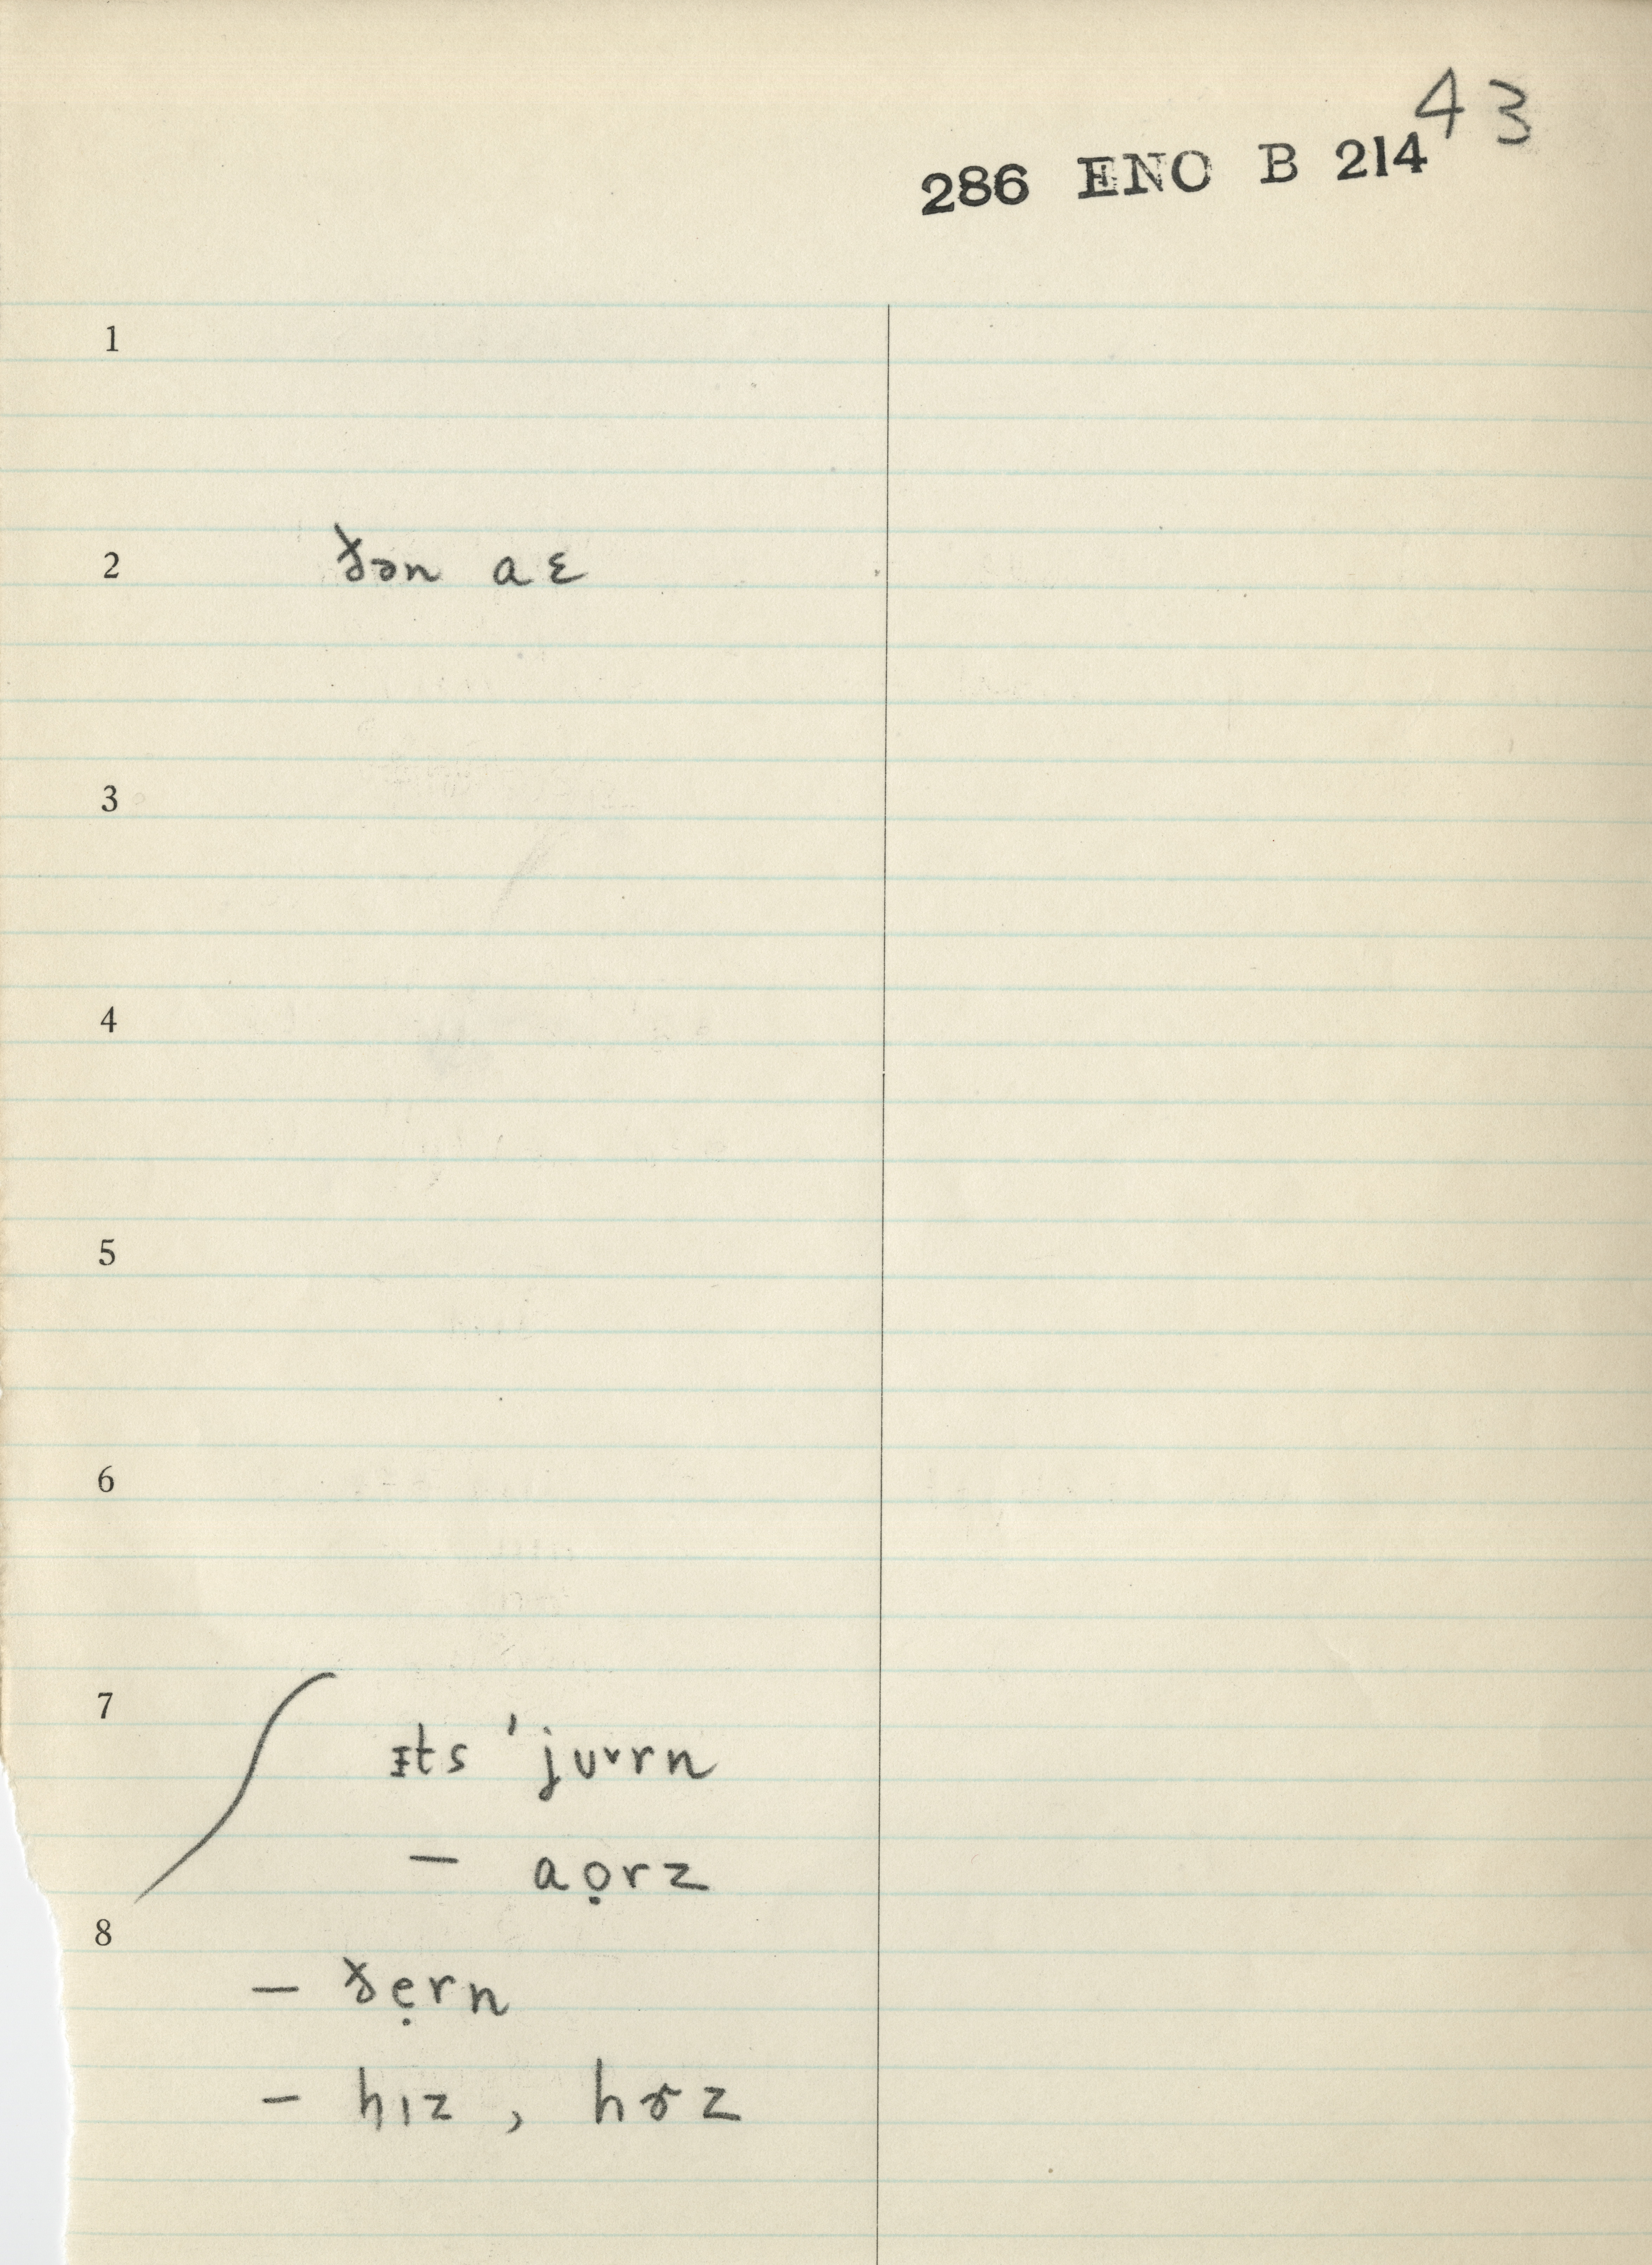 43
286 ENO B 214
1
2 ðən aɛ
3
4
5
6
7
ᵻts ˈjuᵛrn
— aọrz
8
— ðẹrn
— hɪz , hɚz